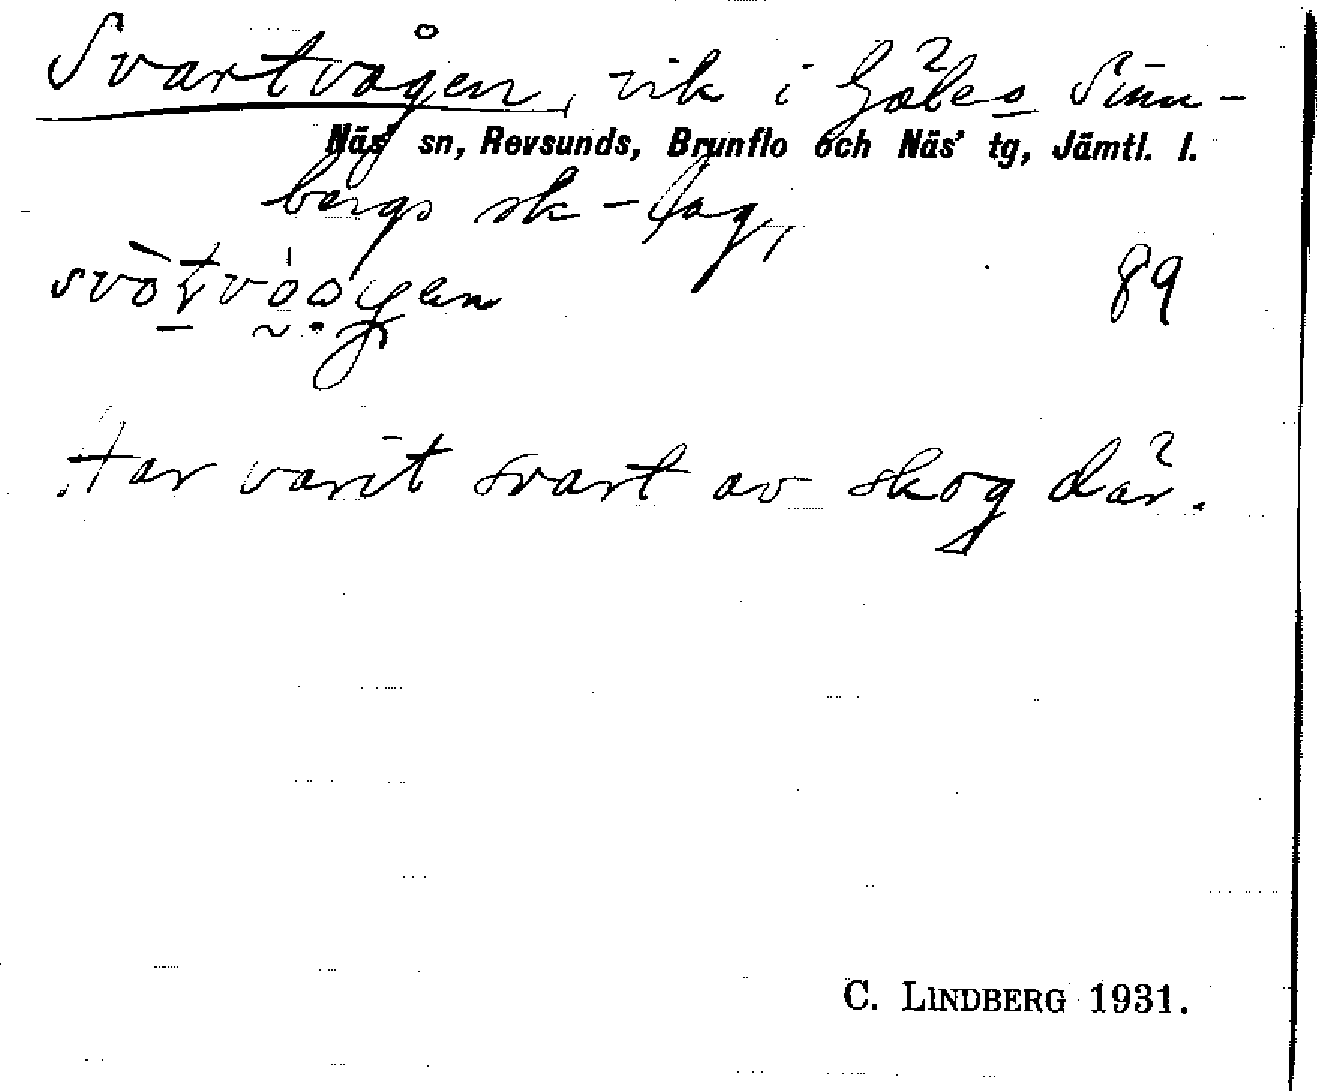 Svartvågen, vik i Sinn-
Näs' sn, Revsunds, Brunflo och Näs' tg, Jämtl. l.
bergs sk-lag,
89
Har varit svart av skog där.
C. LINDBERG 1931.